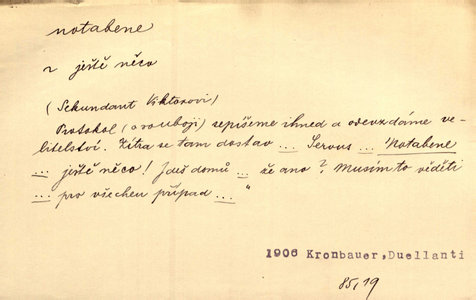 notabene
2 ještě něco
(Sekundant Viktorovi)
Protokol (o souboji) sepíšeme ihned a odevzdáme ve-
litelství. Zítra se tam dostav ... Servus ... Notabene
... ještě něco! Jdeš domů ... že ano? Musím to věděti
... pro všechen případ ... "
1906 Kronbauer, Duellanti
85,19